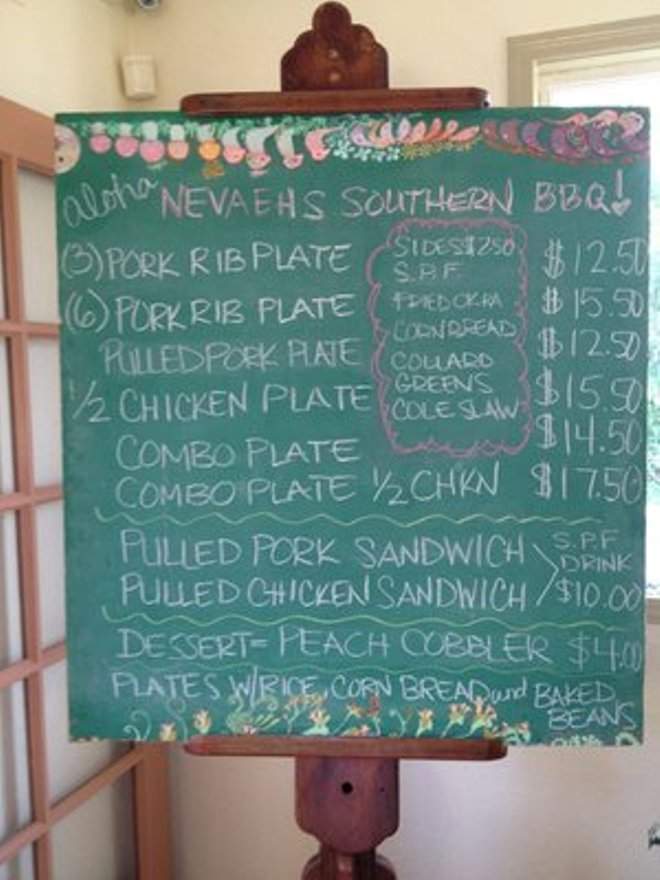 aloha NEVAEHS SOUTHERN BBQ!
(3) PORK RIB PLATE $12.50
(6) PORK RIB PLATE $15.50
PULLED PORK PLATE $12.50
1/2 CHICKEN PLATE $15.50
COMBO PLATE $14.50
COMBO PLATE 1/2 CHKN $17.50
SIDES $2.50
S.P.F
FRIED OKRA
CORNBREAD
COLLARD
GREENS
COLE SLAW
PULLED PORK SANDWICH
PULLED CHICKEN SANDWICH
S.P.F
DRINK
$10.00
DESSERT= PEACH COBBLER $4.00
PLATES W/RICE, CORN BREAD and BAKED
BEANS